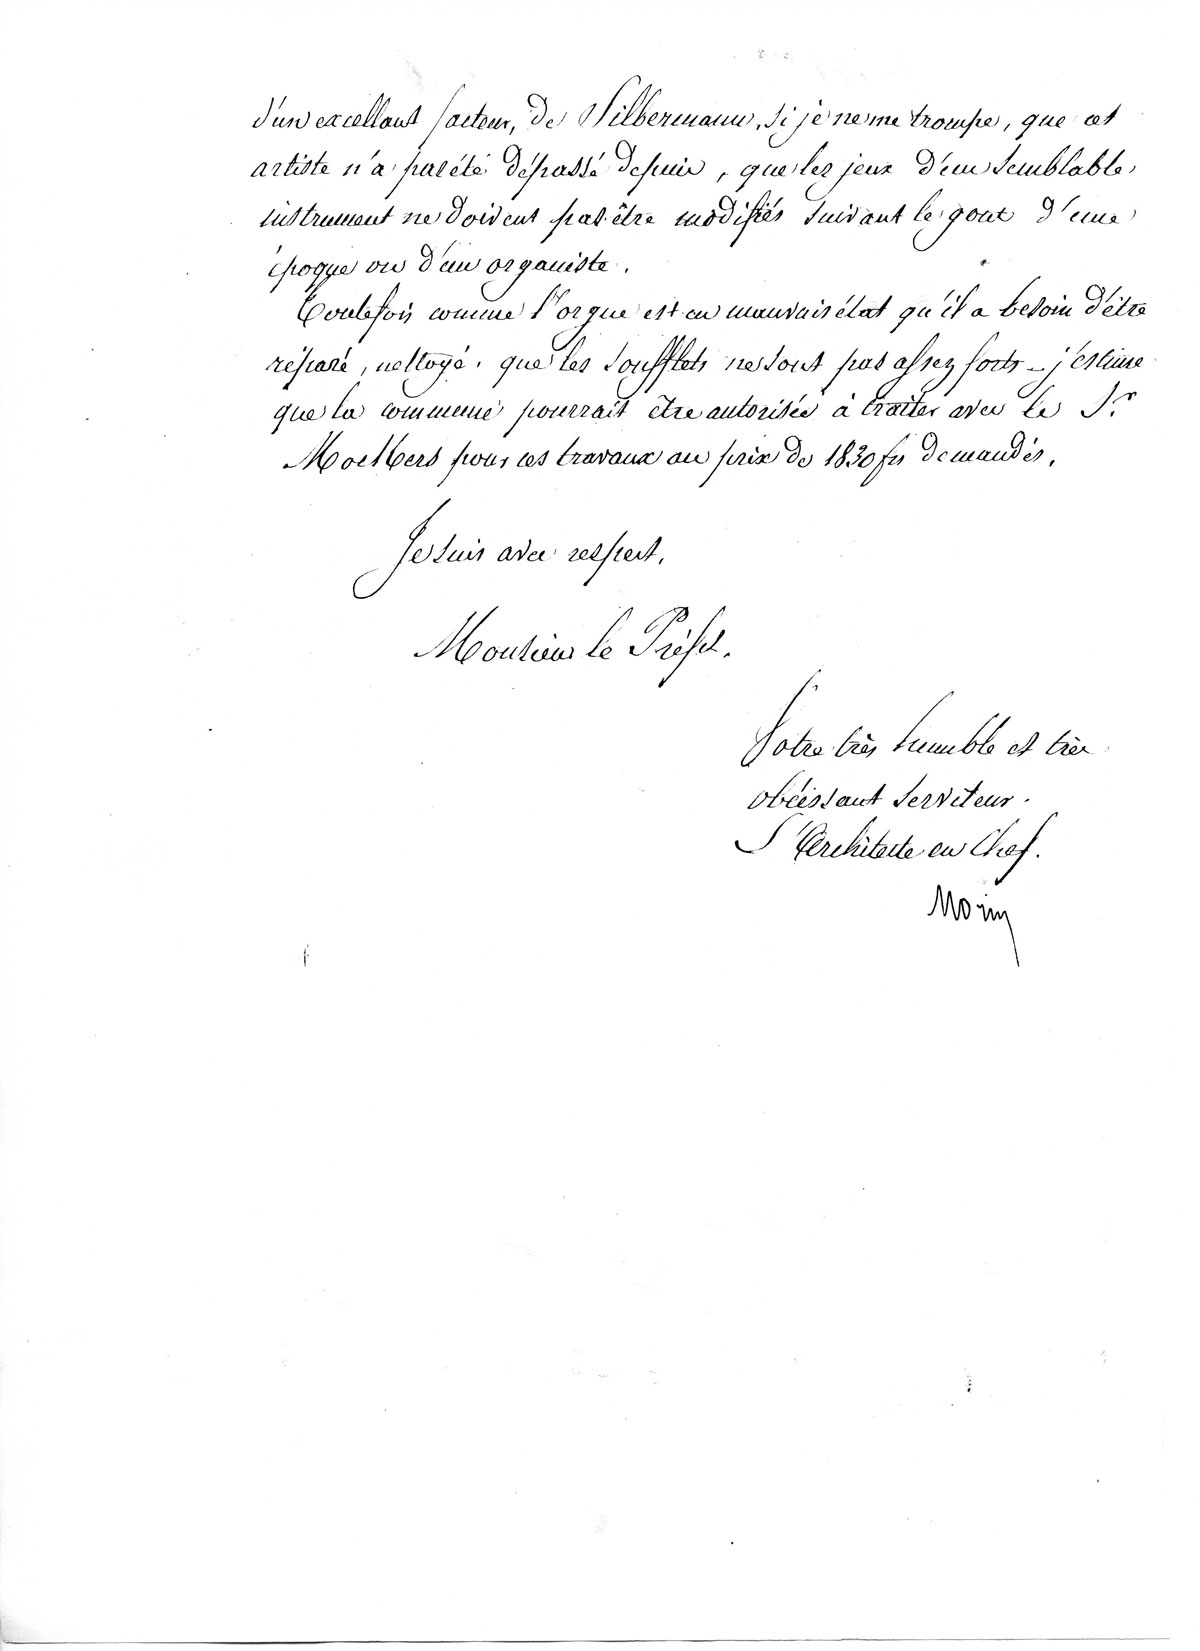 d'un excellant facteur, de Silbermann, si je ne me trompe, que cet
artiste n'a pas été dépassé depuis, que les jeux d'un semblable
instrument ne doivent pas être modifiés suivant le gout d'une
époque ou d'un organiste.
Toutefois comme l'orgue est en mauvais état qu'il a besoin d'être
réparé, nettoyé, que les soufflets ne sont pas assez forts - j'estime
que la commune pourrait être autorisée à traiter avec le Sr
Moellers pour ces travaux au prix de 1830 frs demandés.
Je suis avec respect.
Monsieur le Préfet.
Votre très humble et très
obéissant serviteur.
L'Architecte en Chef.
Morin